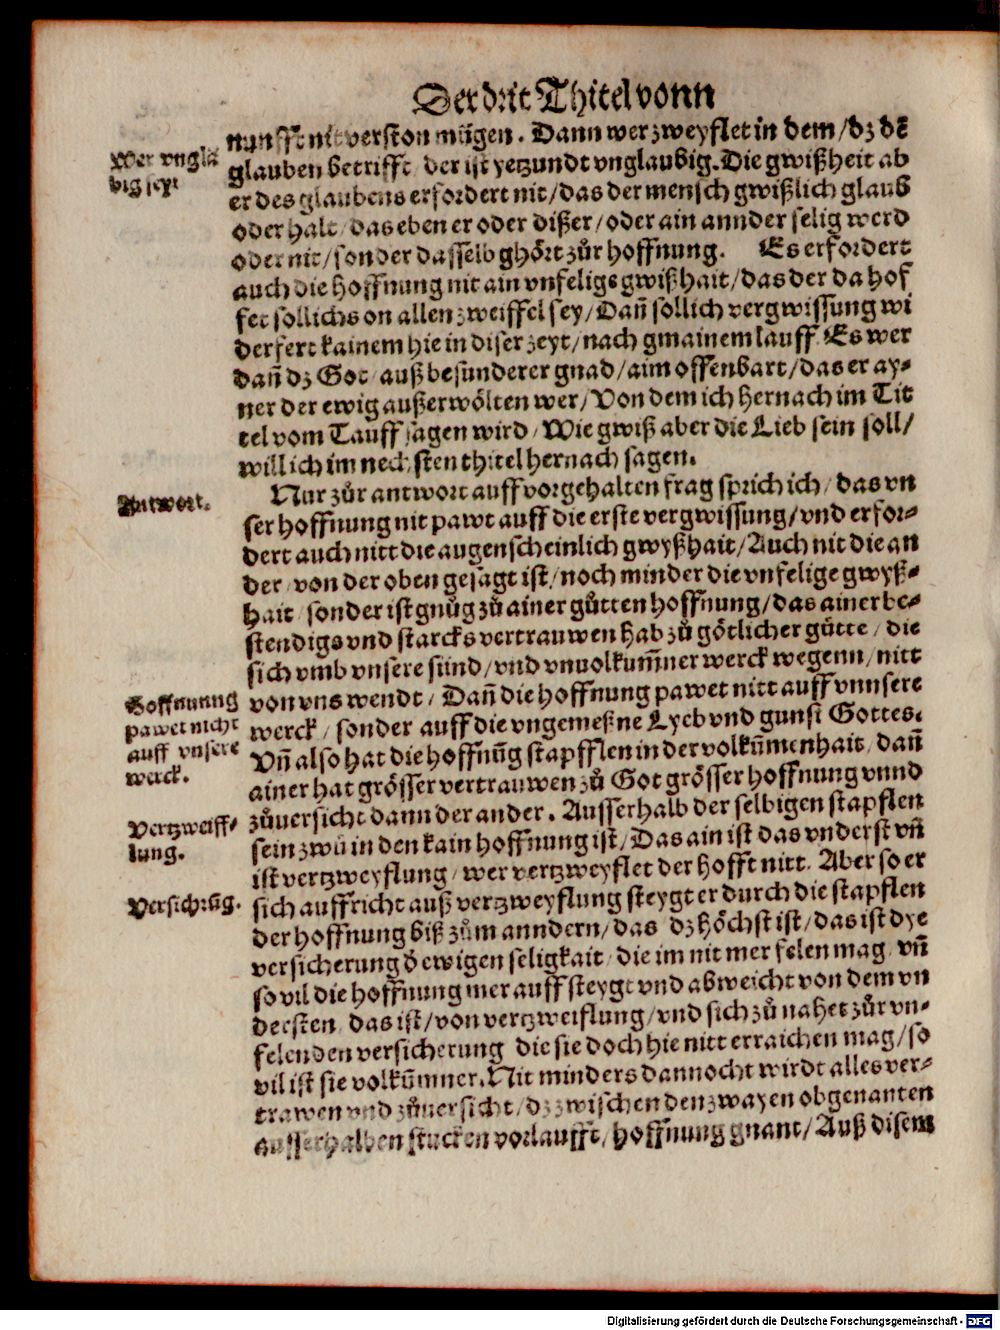 Der drit Thitel vonn
nunfft nit verston mügen. Dann wer zweyflet in dem/dz dẽ
Wer vnglã
big sey
glauben betrifft/ der ist yetzundt vnglaubig. Die gwißheit ab
er des glaubens erfordert nit/das der mensch gwißlich glaub
oder halt/ das eben er oder dißer/oder ain annder selig werd
oder nit/sonder dasselb ghört zůr hoffnung. Es erfordert
auch die hoffnung nit ain vnfeligs gwißhait/das der da hof
fet sollichs on allen zweiffel sey/Dañ sollich vergwissung wi
derfert kainem hie in diser zeyt/nach gmainem lauff. Es wer
dañ dz Got/ auß besunderer gnad/aim offenbart/das er ay-
ner der ewig außerwölten wer/Von dem ich hernach im Tit
tel vom Tauff sagen wird/Wie gwiß aber die Lieb sein soll/
will ich im nechsten thitel hernach sagen.
Antwort.
Nur zůr antwort auff vorgehalten frag sprich ich/ das vn
ser hoffnung nit pawt auff die erste vergwissung/vnd erfor-
dert auch nitt die augenscheinlich gwyßhait/Auch nit die an
der/ von der oben gesagt ist/noch minder die vnfelige gwyß-
hait/ sonder ist gnůg zů ainer gůtten hoffnung/das ainer be-
stendigs vnd starcks vertrauwen hab zů götlicher gůtte/ die
sich vmb vnsere sünd/vnd vnuolkum̃ner werck wegenn/nitt
Hoffnunng
pawet nicht
auff vnsere
werck.
von vns wendt/ Dañ die hoffnung pawet nitt auff vnnsere
werck/ sonder auff die vngemeßne Lyeb vnd gunst Gottes.
Vñ also hat die hoffnũg stapfflen in der volkũmenhait/ dañ
ainer hat grösser vertrauwen zů Got grösser hoffnung vnnd
Vertzweiff-
lung.
zůuersicht dann der ander. Ausserhalb der selbigen stapflen
sein zwů in den kain hoffnung ist/Das ain ist das vnderst vñ
ist vertzweyflung/ wer vertzweyflet der hofft nitt. Aber so er
Versichrũg.
sich auffricht auß vertzweyflung steygt er durch die stapflen
der hoffnung biß zům anndern/das dz höchst ist/das ist dye
versicherung d̃ ewigen seligkait/ die im nit mer felen mag/ vñ
so vil die hoffnung mer auff steygt vnd abweicht von dem vn
dersten/ das ist/von vertzweiflung/vnd sich zů nahet zůr vn-
felenden versicherung/ die sie doch hie nitt erraichen mag/so
vil ist sie volkũmner. Nit minders dannocht wirdt alles ver-
trawen vnd zůuersicht/dz zwischen den zwayen obgenanten
ausserhalben stucken vorlaufft/hoffnung gnant/Auß disem
Digitalisierung gefördert durch die Deutsche Forschungsgemeinschaft - DFG